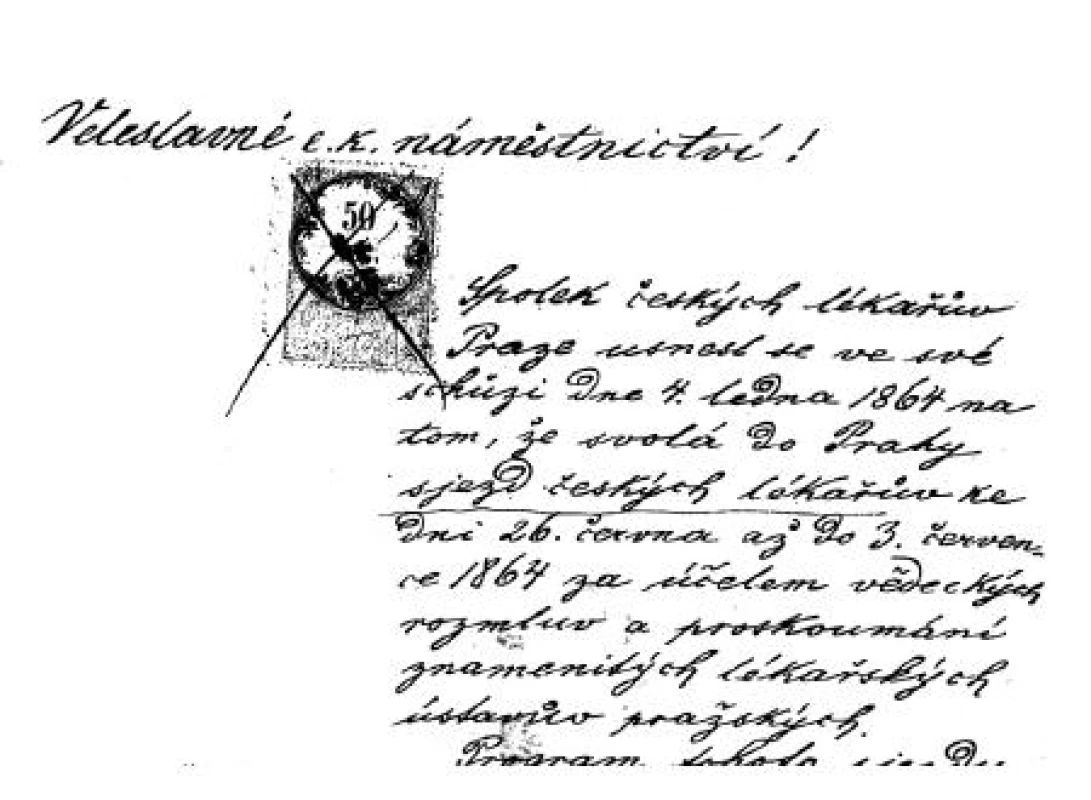 Veleslavné c.k. náměstnictví!
50
Spolek českých lékařův
Praze usnesl se ve své
schůzi dne 4. ledna 1864 na
tom, že svolá do Prahy
sjezd českých lékařův ke
dni 26. června až do 3. červen-
ce 1864 za účelem vědeckých
rozmluv a proskoumání
znamenitých lékařských
ústavův pražských.
Program tohoto sjezdu